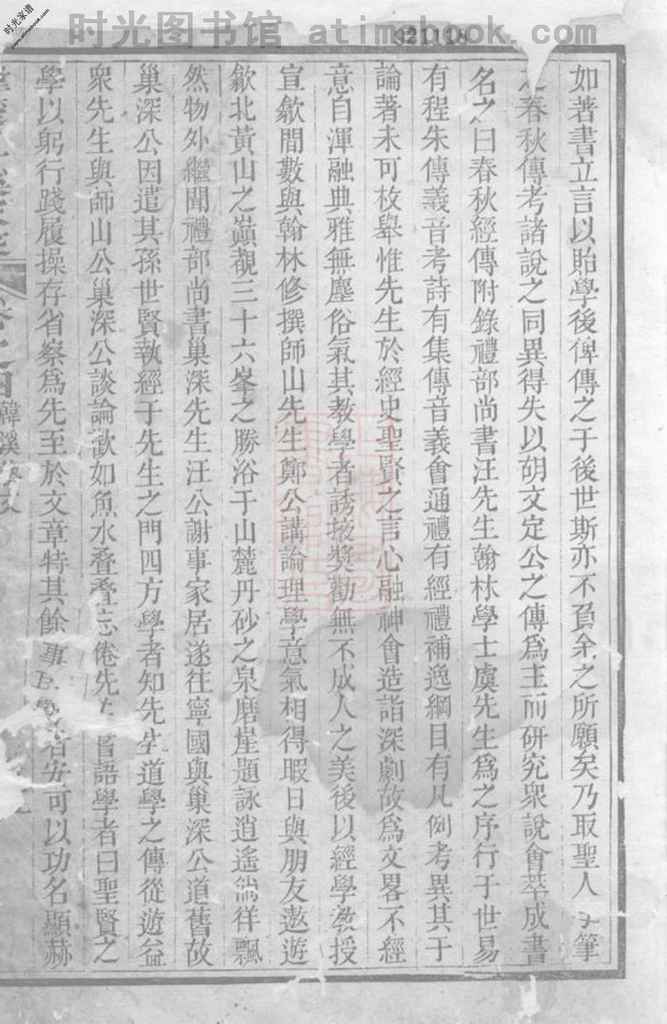 时光图书馆 atimebook.com
时光家谱
如著書立言以貽學後俾傳之于後世斯亦不負余之所願矣乃取聖人 筆
春秋傳考諸說之同異得失以胡文定公之傳爲主而研究衆說會萃成書
名之曰春秋經傳附錄禮部尚書汪先生翰林學士虞先生爲之序行于世易
有程朱傳義音考詩有集傳音義會通禮有經禮補逸綱目有凡例考異其于
論著未可枚舉惟先生於經史聖賢之言心融神會造詣深劇故爲文畧不經
意自渾融典雅無塵俗氣其教學者誘掖奬勸無不成人之美後以經學教授
宣歙間數與翰林修撰師山先生鄭公講論理學意氣相得暇日與朋友遨遊
歙北黃山之巔覩三十六峯之勝浴于山麓丹砂之泉磨崖題詠逍遙徜徉飄
然物外繼聞禮部尚書巢深先生汪公謝事家居遂往寧國與巢深公道舊故
巢深公因遣其孫世賢執經于先生之門四方學者知先生道學之傳從遊益
衆先生與師山公巢深公談論歡如魚水叠叠忘倦先 嘗語學者曰聖賢之
學以躬行踐履操存省察爲先至於文章特其餘事 安可以功名顯赫
韓溪